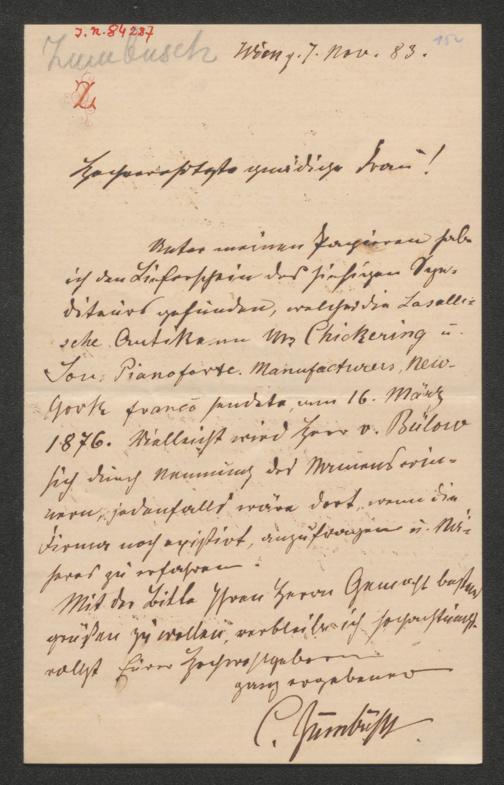 J.N. 84237
Zumbusch
152
Wien, 7. Nov. 83.
Z
Hochverehrteste gnädige Frau!
Unter meinen Papieren habe
ich den Lieferschein des hiesigen Spe-
diteurs gefunden, welcher die Lasalli-
sche Antike an Mrs Chickering u.
Son, Pianoforte. Manufacturers, New-
York franco sendete, am 16. März
1876. Vielleicht wird Herr v. Bülow
sich durch Nennung des Namens erin-
nern, jedenfalls wäre dort, wenn die
Firma noch existirt, anzufragen u. Nä-
heres zu erfahren.
Mit der Bitte Ihren Herrn Gemahl bestens
grüßen zu wollen, verbleibe ich hochachtungs-
vollst Euer Hochwohlgeboren
ganz ergebener
C. Zumbusch